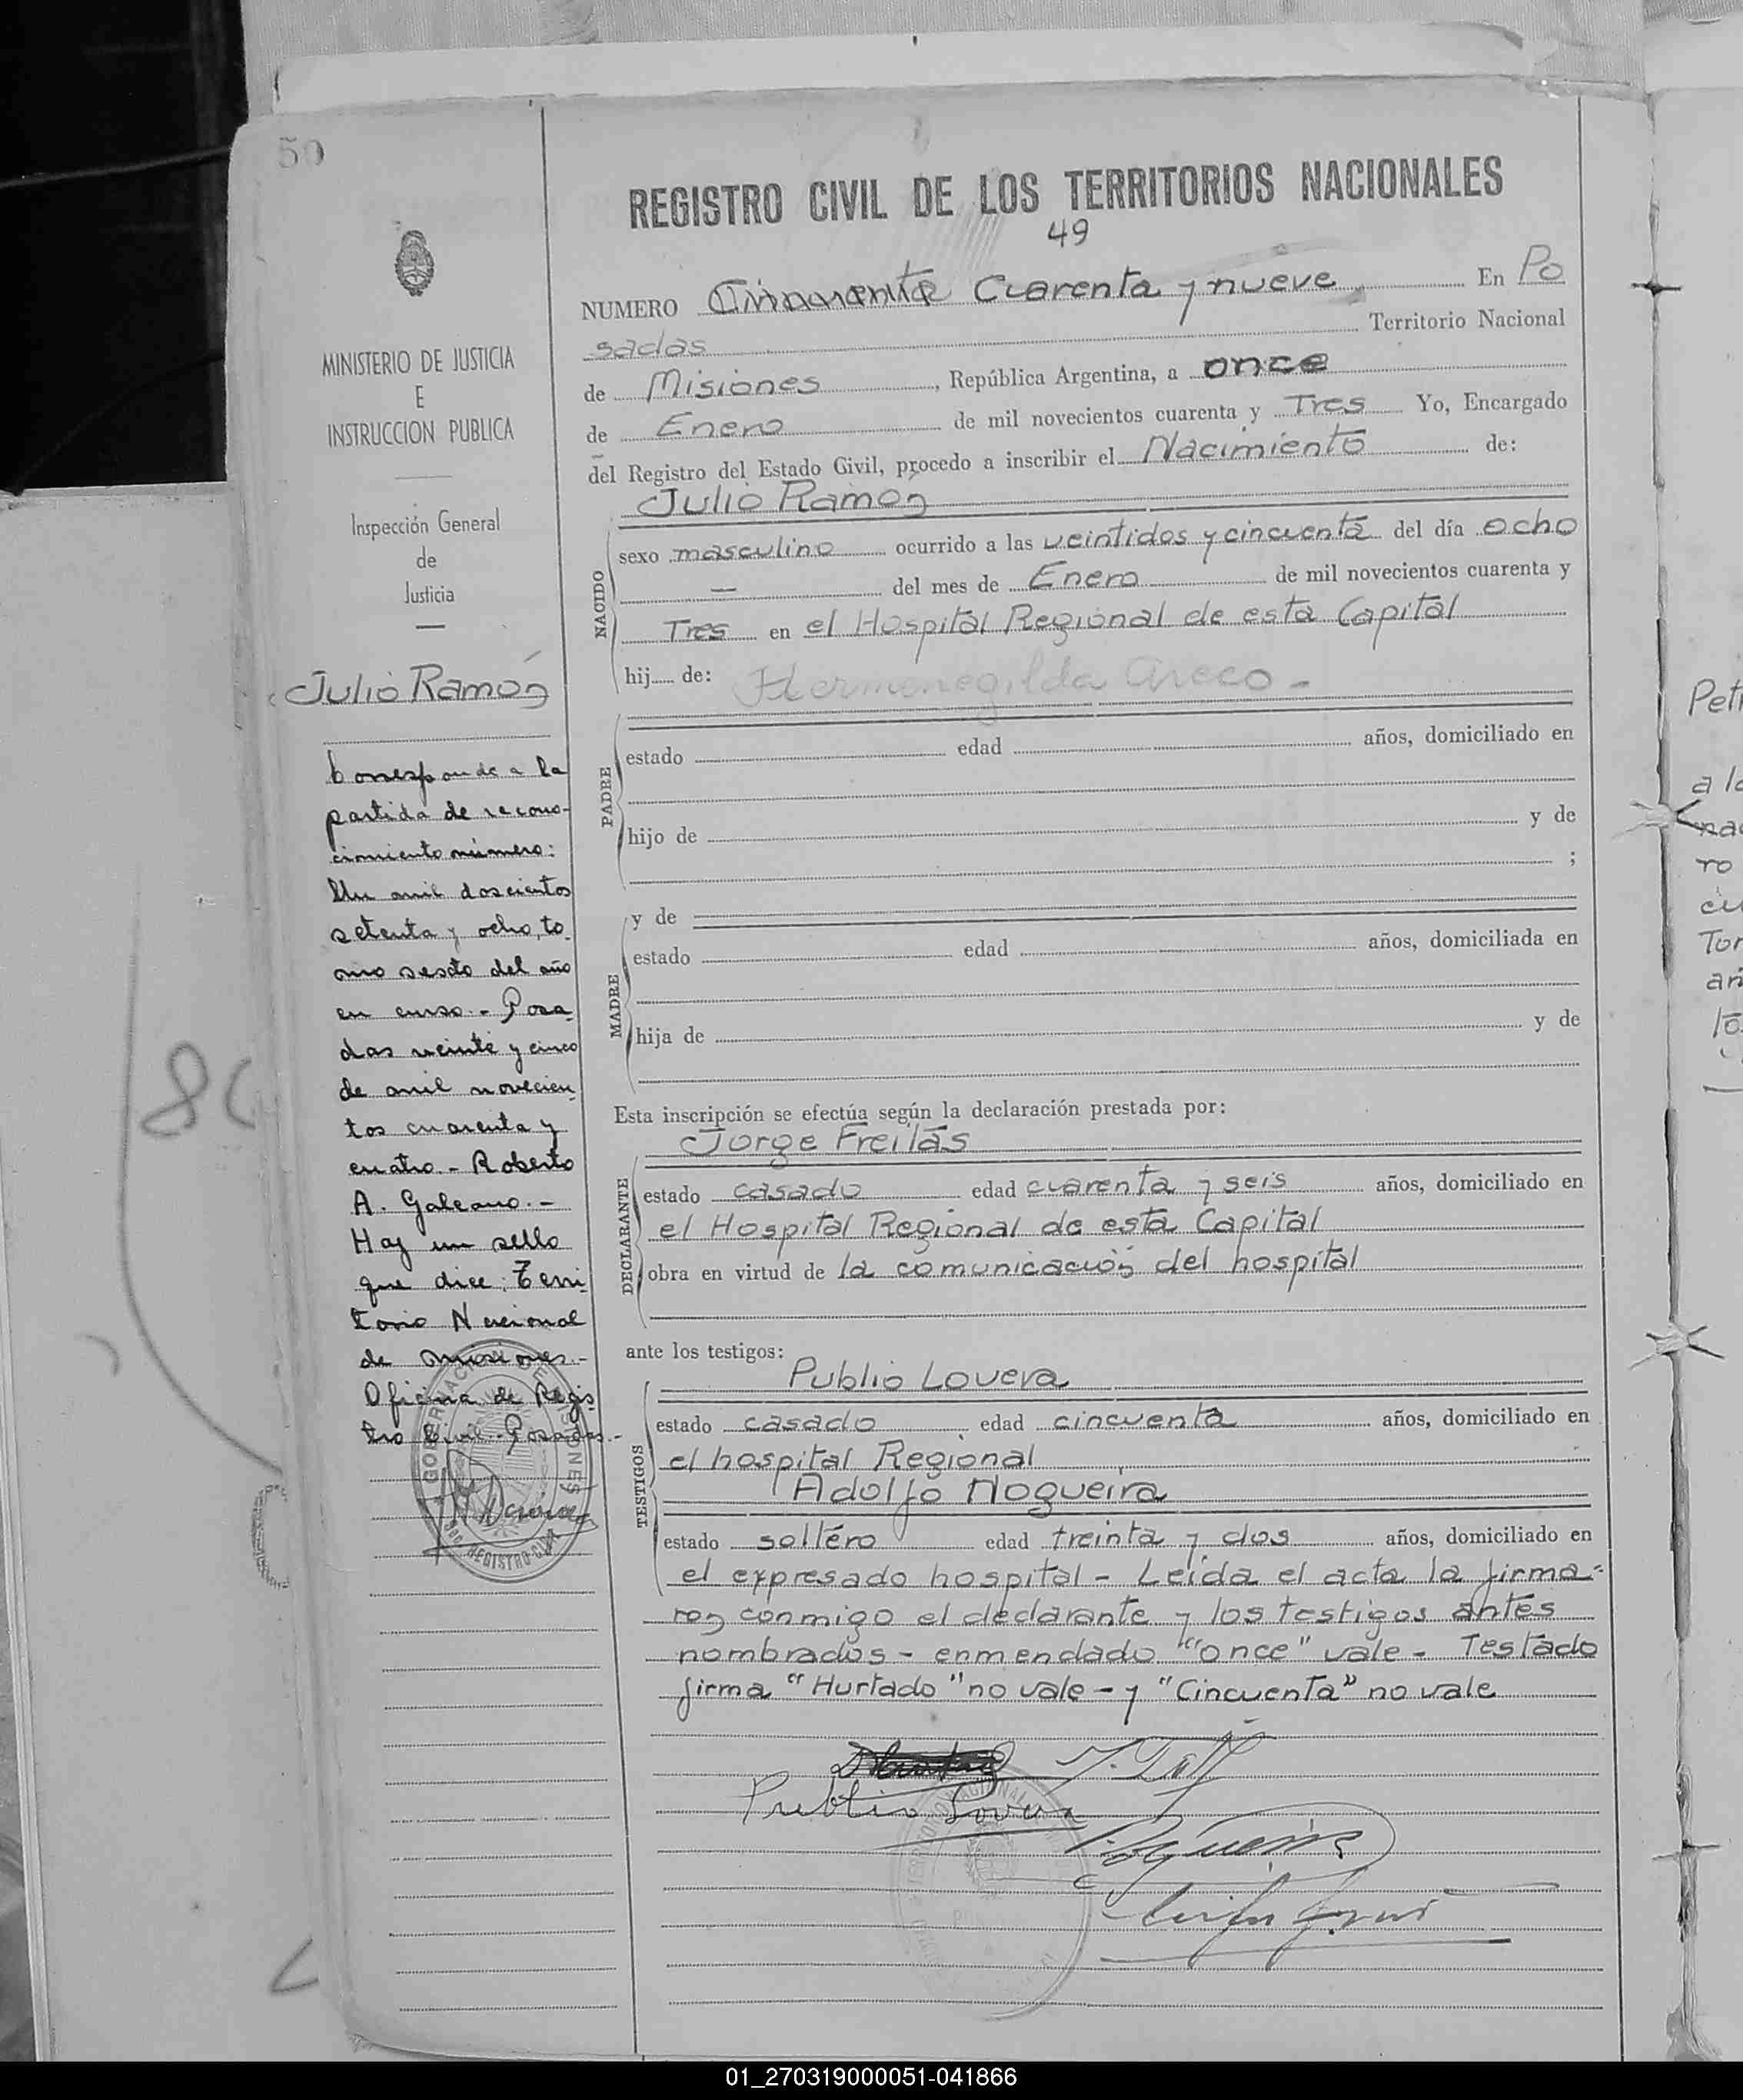 50
REGISTRO CIVIL DE LOS TERRITORIOS NACIONALES
49
NUMERO Cincuenta Cuarenta y nueve En Po
sadas Territorio Nacional
de Misiones, República Argentina, a once
de Enero de mil novecientos cuarenta y Tres Yo, Encargado
del Registro del Estado Civil, procedo a inscribir el Nacimiento de:
Julio Ramón
NACIDO
sexo masculino ocurrido a las veintidos y cincuenta del día ocho
— del mes de Enero de mil novecientos cuarenta y
Tres en el Hospital Regional de esta Capital
hij de: Hermenegilda Areco -
PADRE
estado edad años, domiciliado en
hijo de y de
;
MADRE
y de
estado edad años, domiciliada en
hija de y de
Esta inscripción se efectúa según la declaración prestada por:
Jorge Freilas
DECLARANTE
estado casado edad cuarenta y seis años, domiciliado en
el Hospital Regional de esta Capital
obra en virtud de la comunicación del hospital
ante los testigos:
Publio Lovera
TESTIGOS
estado casado edad cincuenta años, domiciliado en
el hospital Regional
Adolfo Nogueira
estado soltéro edad treinta y dos años, domiciliado en
el expresado hospital - Leida el acta la firma-
ron conmigo el declarante y los testigos antes
nombrados - enmendado "once" vale - Testado
firma "Hurtado" no vale - y "Cincuenta" no vale
Publio Lovera
Nogueira
MINISTERIO DE JUSTICIA
E
INSTRUCCION PUBLICA
Inspección General
de
Justicia
Julio Ramón
Corresponde a la
partida de recono-
cimiento número:
Un mil doscientos
setenta y ocho, to-
mo sesto del año
en curso. - Posa-
das veinte y cinco
de mil novecien-
tos cuarenta y
cuatro - Roberto
A. Galeano. -
Hay un sello
que dice: Terri-
torio Nacional
de Misiones -
Oficina de Regis-
tro Civil - Posadas. -
GOBERNACION DE MISIONES
REGISTRO CIVIL
Pet
a la
ro
Tor
01_270319000051-041866